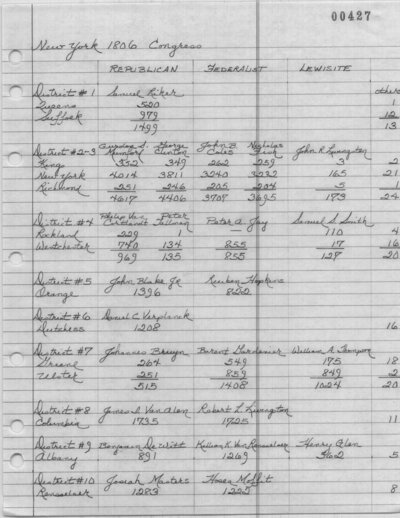 00427
New York 1806 Congress
REPUBLICAN FEDERALIST LEWISITE
District #1 Samuel Riker others
Queens 520 1
Suffolk 979 12
1499 13
District #2-3 Gurdon S. Mumford George Clinton John B. Coles Nicholas Fish John R. Livingston
Kings 352 349 262 259 3 2
New York 4014 3811 3240 3232 165 21
Richmond 251 246 205 204 5 1
4617 4406 3707 3695 173 24
District #4 Philip Van Cortlandt Peter Peter A. Jay Samuel S. Smith
Rockland 229 1 — 110 4
Westchester 740 134 855 17 16
969 135 855 127 20
District #5 John Blake Jr Reuben Hopkins
Orange 1396 822
District #6 Daniel C. Verplanck
Dutchess 1208 16
District #7 Johannes Bruyn Barent Gardenier William A. Thompson
Greene 264 549 175 18
Ulster 251 859 849 2
515 1408 1024 20
District #8 James I. Van Alen Robert L. Livingston
Columbia 1735 1725 11
District #9 Benjamin DeWitt Killian K. Van Rensselaer Henry Glen
Albany 891 1269 362 5
District #10 Josiah Masters Hosea Moffit
Rensselaer 1283 1225 8